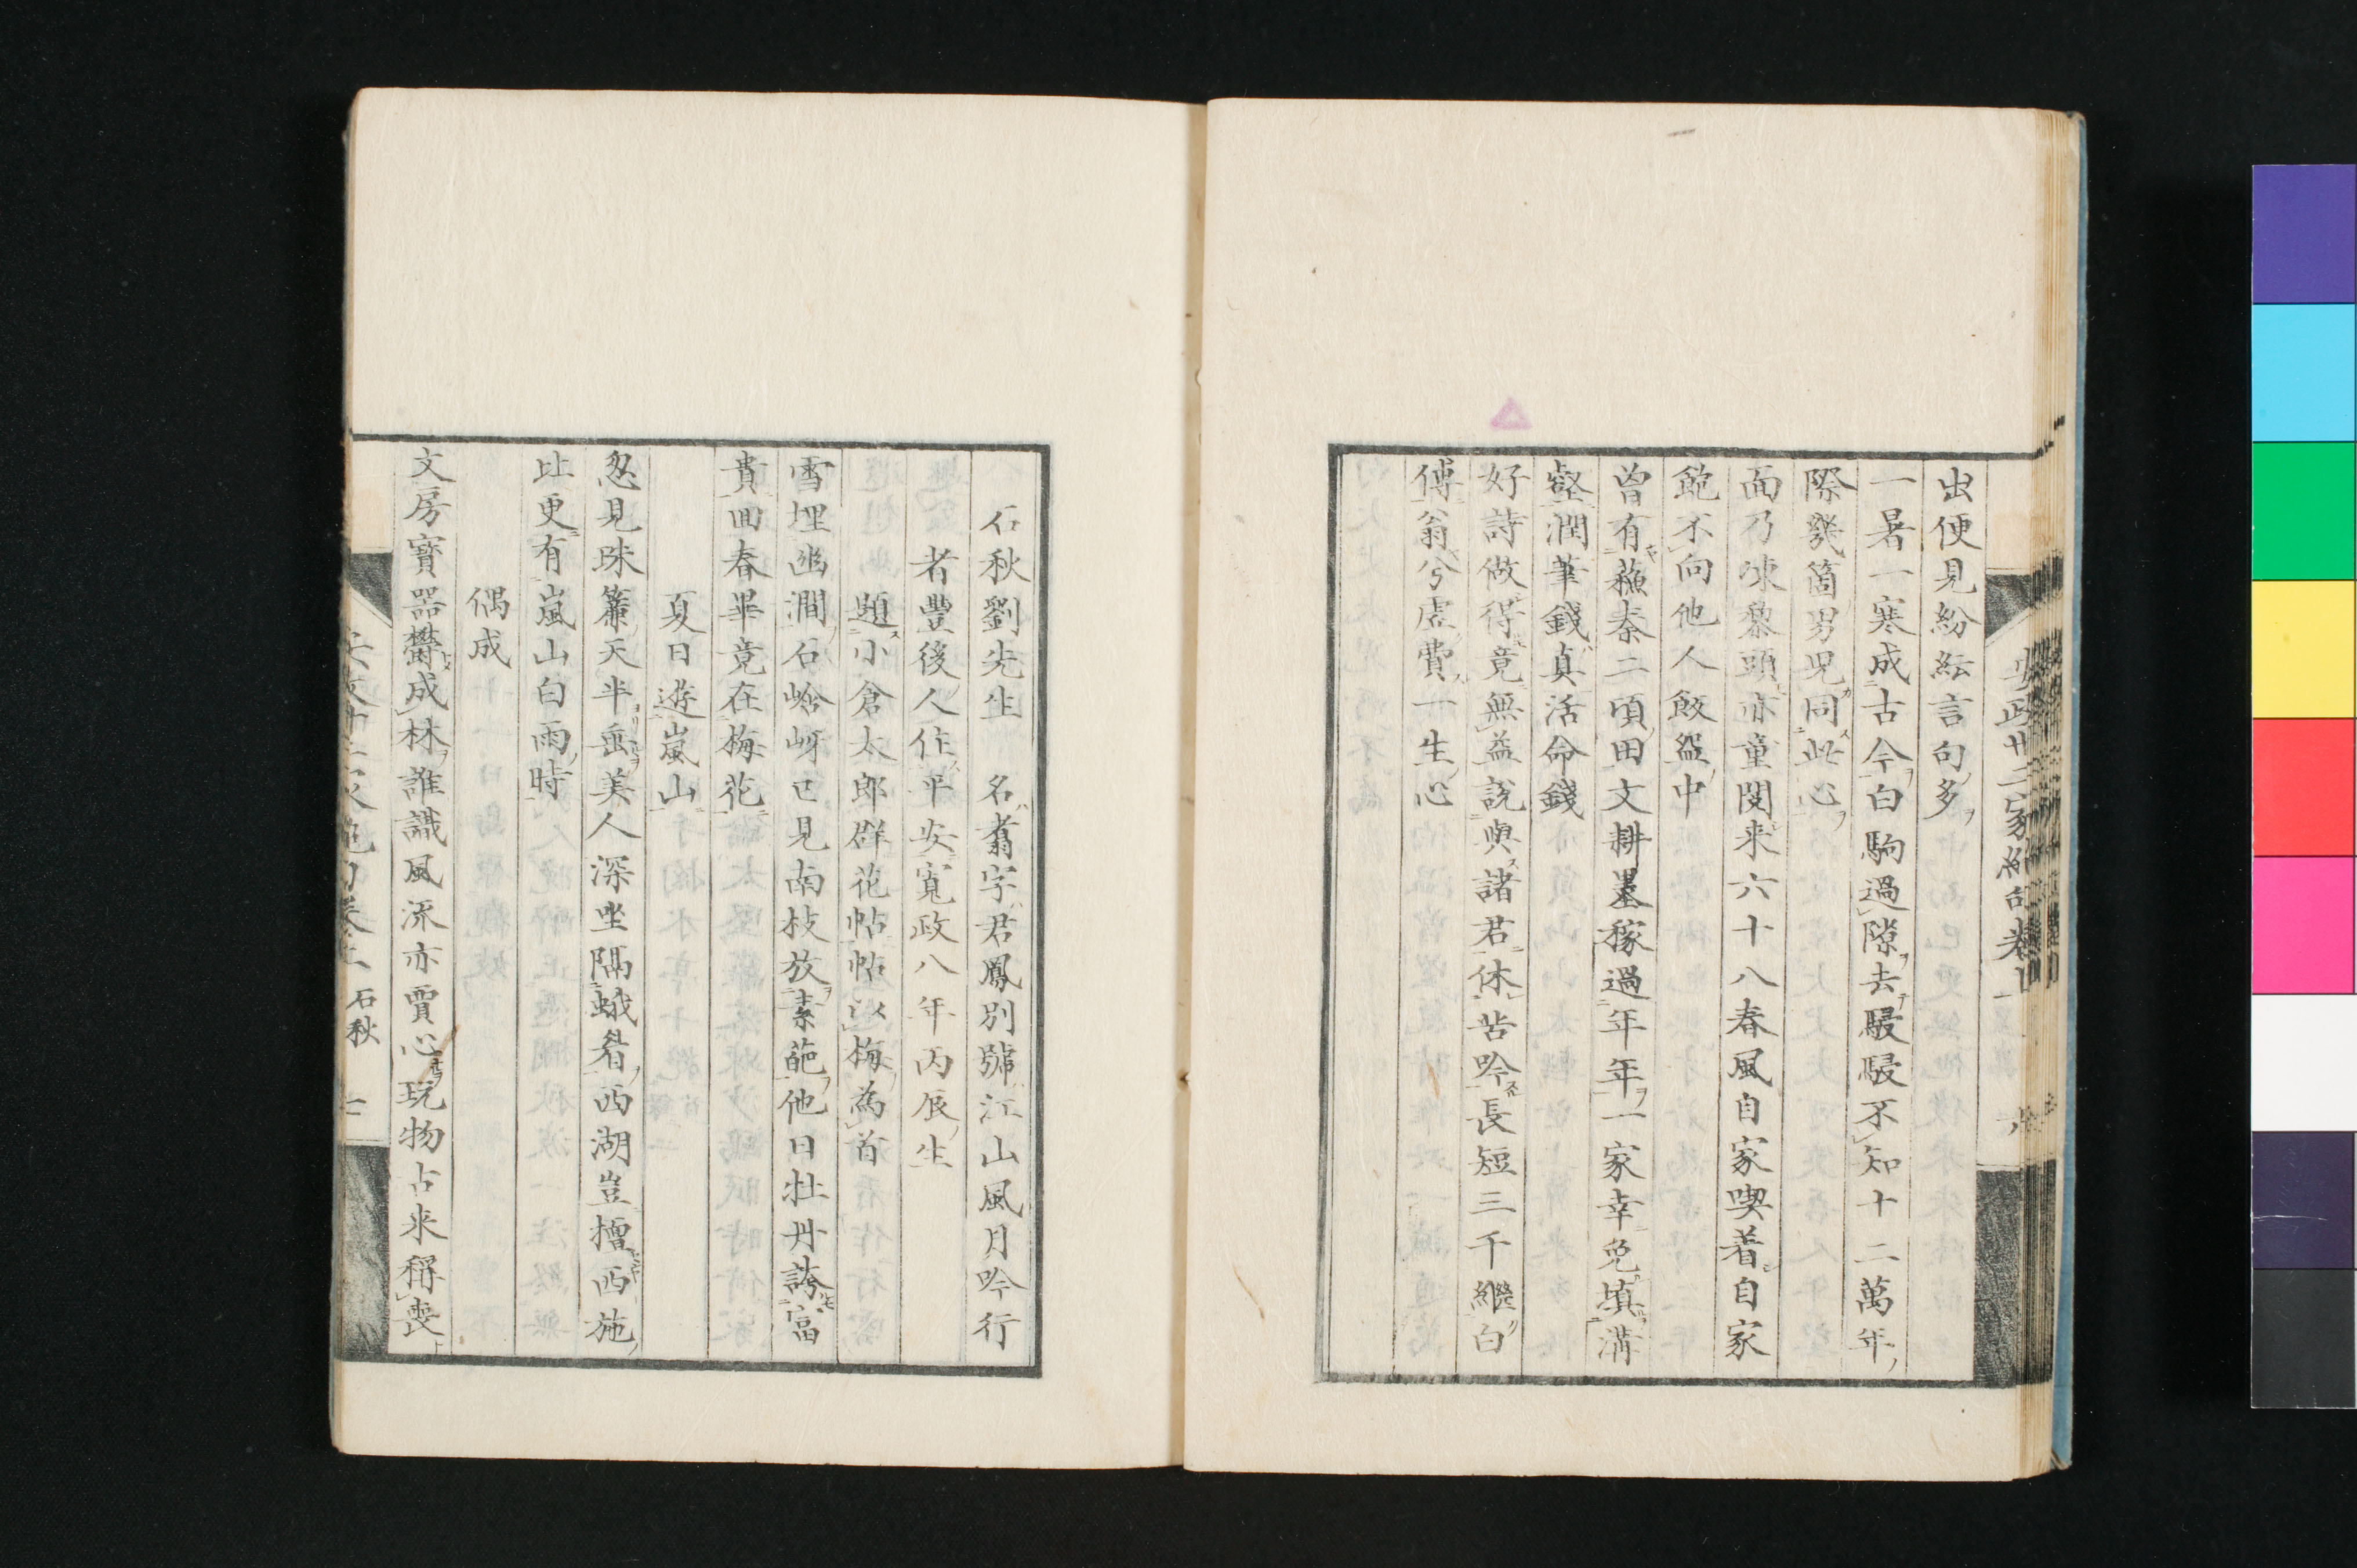 出便見紛紜言句多
一暑一寒成古今白駒過隙去駸駸不知十二萬年
際幾箇男兒同此心
面乃凍黎頭亦童閱来六十八春風自家喫着自家
飽不向他人飯盌中
曽有蘓秦二頃田文耕墨稼過年年一家幸免填溝
壑潤筆錢真活命錢
好詩做得竟無益說與諸君休苦吟長短三千繼白
傅翁兮虛費一生心
石秋劉先生 名翥字君鳳別號江山風月吟行
者豐後人住平安寬政八年丙辰生
題小倉太郎群花帖帖以梅為首
雪埋幽澗石㟏岈已見南枝放素葩他日牡丹誇富
貴回春畢竟在梅花
夏日遊嵐山
忽見珠簾天半垂美人深坐隔蛾眉西湖豈擅西施
比更有嵐山白雨時
偶成
文房寳器欝成林誰識風流亦賈心玩物古来稱喪
石秋